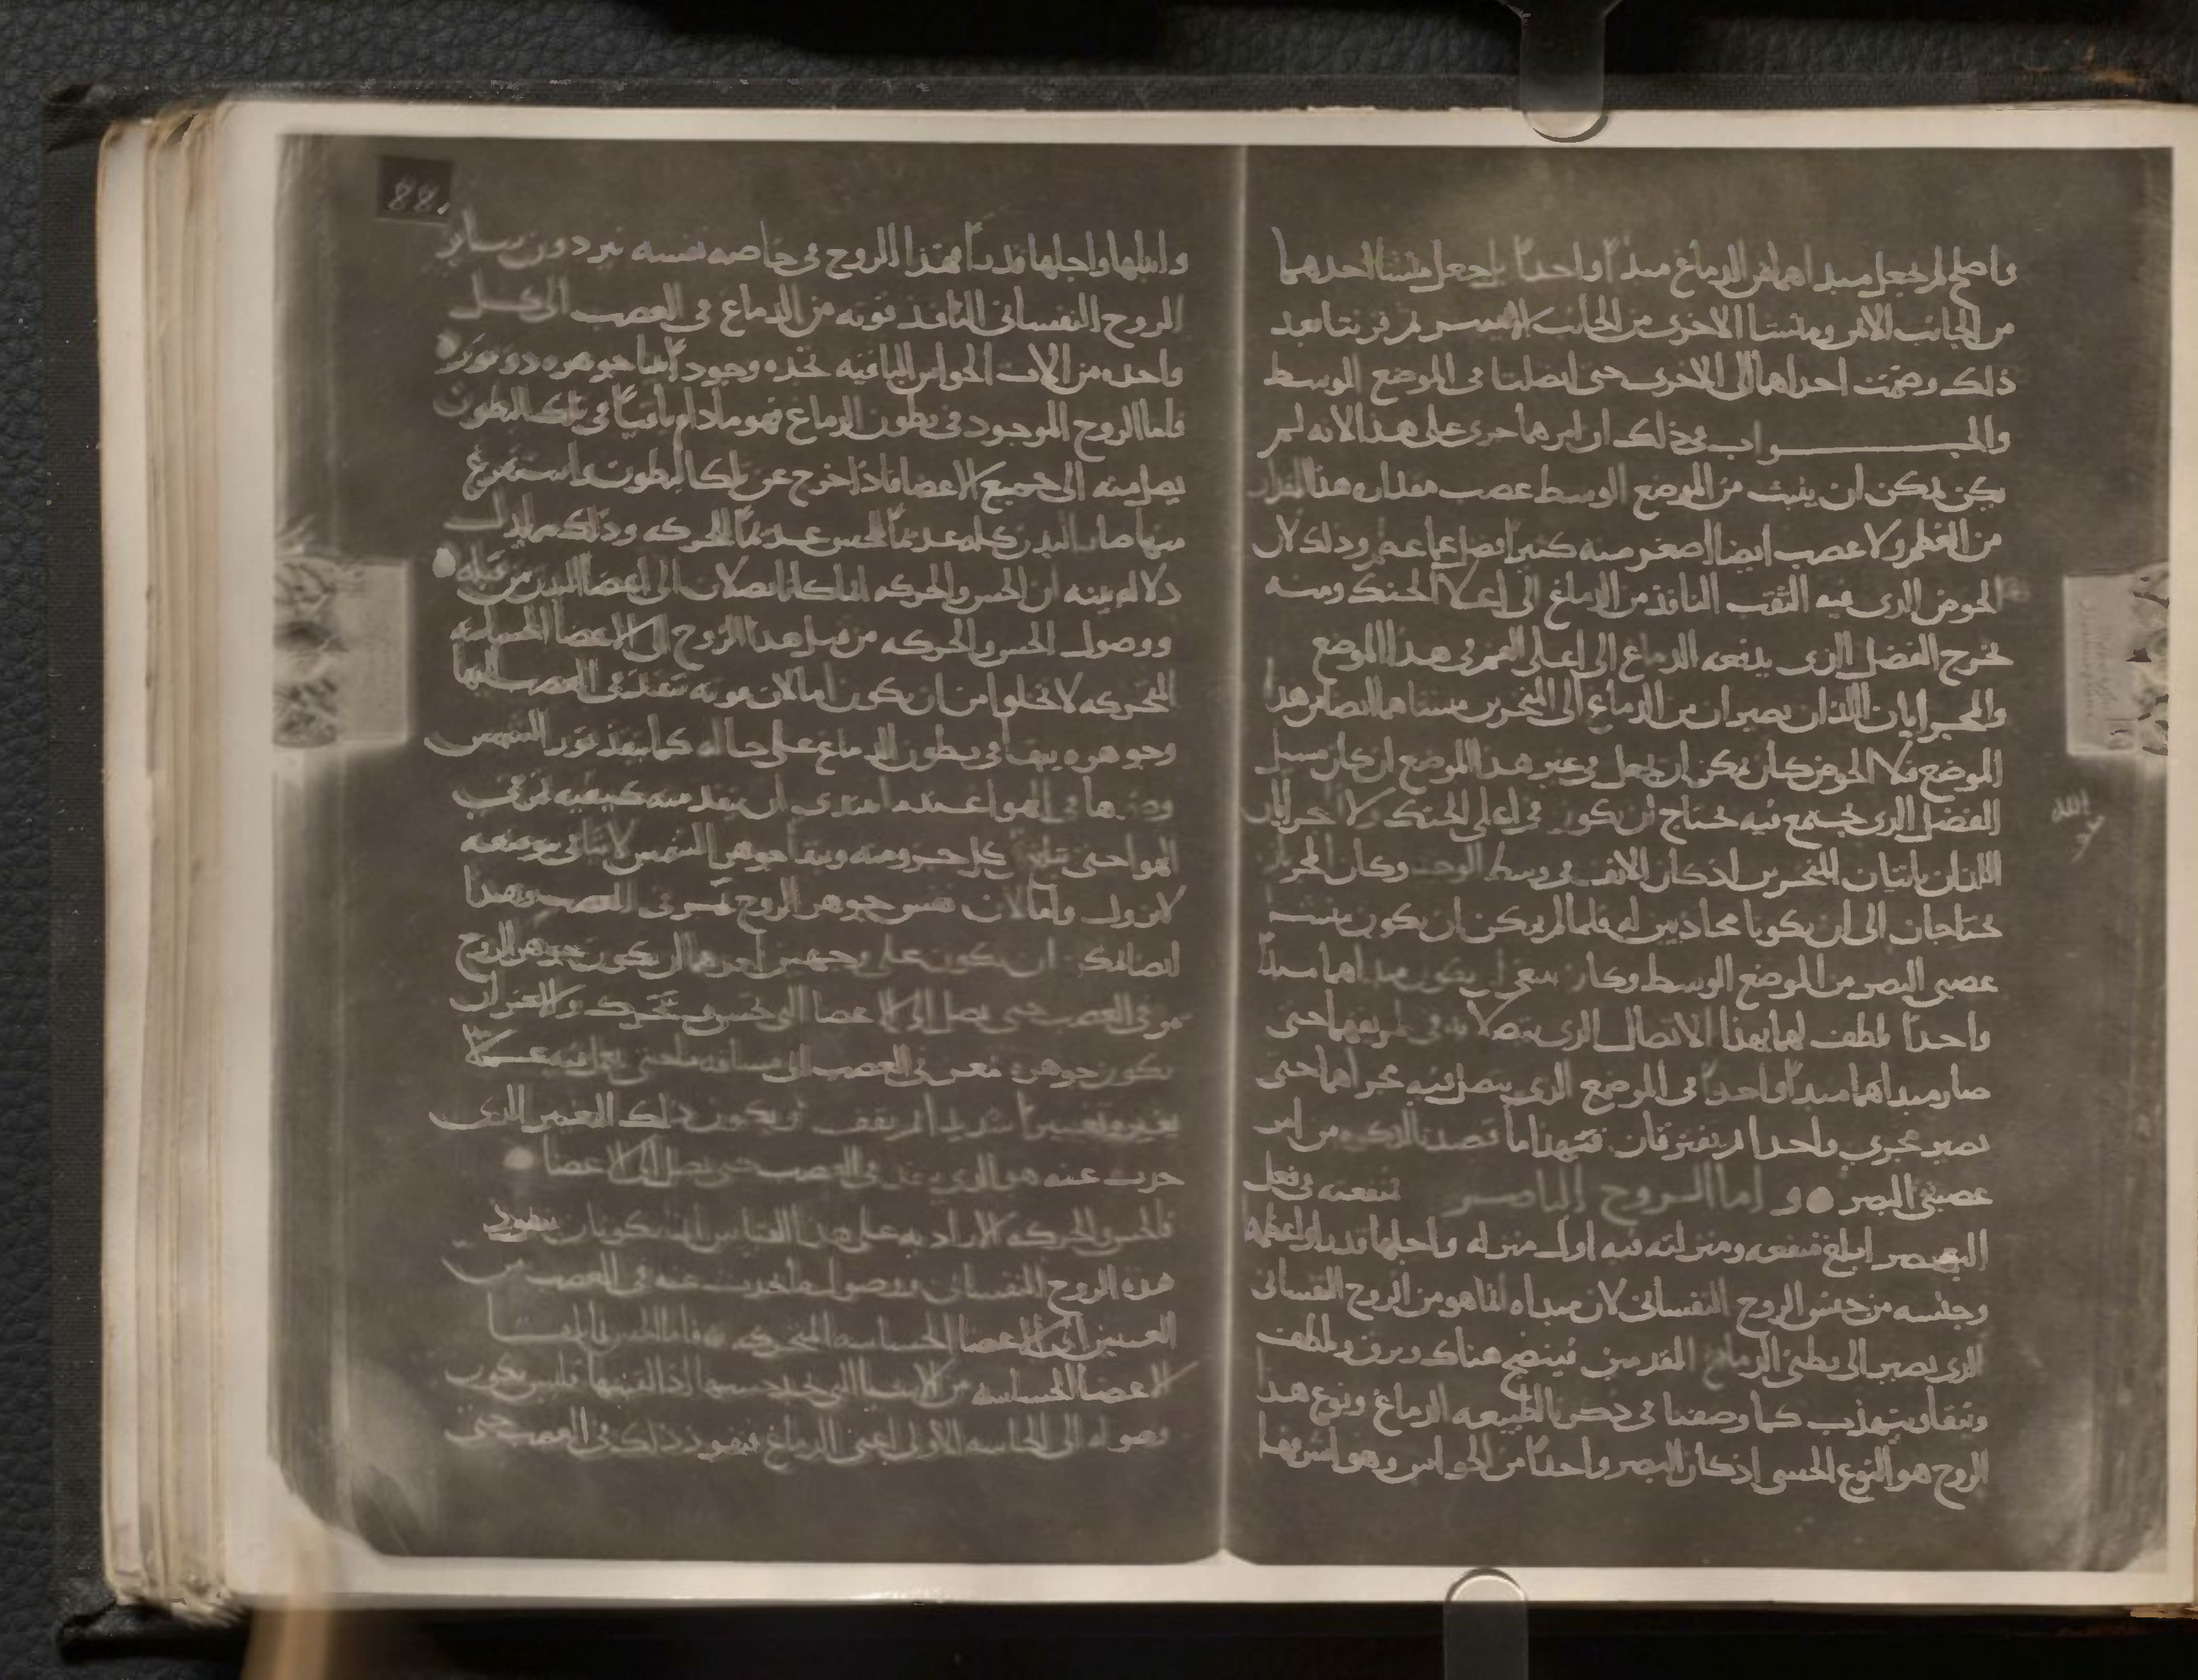 واصلح لم يجعل مبداهما من الدماغ مبدأ واحداً بل جعل منشا احدهما
من الجانب الايمن ومنشا الاخرى من الجانب الايسر ثم قربتا بعد
ذلك وضمت احداهما الى الاخرى حتى اتصلتا فى الموضع الوسط
والجـــواب فى ذلك ان امرهما جرى على هذا لانه لم
يكن يمكن ان ينبت من الموضع الوسط عصب مقداره هذا المقدار
من العظم ولا عصب ايضا اصغر منه كثيراً فضلا عما عظم وذلك لان
الحوض الذى فيه الثقب النافذ من الدماغ الى اعلا الحنك ومنه
يخرج الفضل الذى يدفعه الدماغ الى اعلى الفم فى هذا الموضع
والمجريان اللذان يصيران من الدماغ الى المنخرين هما ايضا فى هذا
الموضع فلا الحوض كان يمكن ان يجعل فى غير هذا الموضع اذ كان سبيل
الفضل الذى يجتمع فيه يحتاج ان يكون فى اعلى الحنك ولا المجريان
اللذان ياتيان المنخرين اذ كان الانف فى وسط الوجه وكان المجريان
يحتاجان الى ان يكونا محاذيين له فلما لم يمكن ان يكون منشا
عصبى البصر من الموضع الوسط وكان ينبغى ان يكون مبداهما مبدأ
واحداً لطف لهما بهذا الاتصال الذى يتصلا به فى طريقهما حتى
صار مبداهما مبدأ واحداً فى الموضع الذى يتصل فيه مجراهما حتى
يصير مجرى واحدا ثم يفترقان فهذا ما قصدنا لذكره من امر
عصبتى البصر و اما الروح الباصر فمنفعته فى فعل
البصر ابلغ منفعه ومنزلته فيه اول منزله واجلها قدرا واعلاها
وجنسه من جنس الروح النفسانى لان مبداه انما هو من الروح النفسانى
الذى يصير الى بطنى الدماغ المقدمين فينضج هناك ويرق ويلطف
وينقا ويتهذب كما وصفنا فى ذكرنا لطبيعه الدماغ ونوع هذا
الروح هو النوع الحسى اذ كان البصر واحداً من الحواس وهو اشرفها
وانبلها واجلها قدراً فهذا الروح فى خاصه نفسه نير دون ساير
الروح النفسانى النافذ قوته من الدماغ فى العصب الى كل
واحده من الات الحواس الباقيه وجوداً جوهره ذو نور
فاما الروح الموجود فى بطون الدماغ فهو ما دام باقياً فى تلك البطون
يصل منه الى جميع الاعضا فاذا خرج عن تلك البطون واستفرغ
منها صار البدن كله عديماً للحس عديماً للحركه وذلك مما يدل
دلاله بينه ان الحس والحركه انما كانا يصلان الى اعضا البدن من قبله
ووصول الحس والحركه من قبل هذا الروح الى الاعضا الحساسه
المتحركه لا يخلوا من ان يكون اما لان قوته تنفذ فى العصب اليها
وجوهره يبقا فى بطون الدماغ على حاله كما ينفذ نور الشمس
فى الهوا عندما ان ينفذ منه كيفيه
الهوا حتى كل جزو منه ويبقا جوهر الشمس لابثا فى موضعه
لا يزول واما لان نفس جوهر الروح تمر فى العصب وهذا
ايضا يمكن ان يكون على وجهين احدهما ان يكون جوهر الروح
يمر فى العصب حتى يصل الى الاعضا التى تحس وتتحرك والاخر ان
يكون جوهره يمر فى العصب الى مسافه ما حتى يعمل فيه عملا
يغيره تغييراً شديدا ثم يقف ويكون ذلك التغيير الذى
حدث عنه هو الذى ينفذ فى العصب حتى يصل الى الاعضا
فالحس والحركه الاراديه على هذا القياس انما يكونان بنفوذ
هذه الروح النفسانى ووصول ما يحدث عنه فى العصب من
التغيير الى الاعضا الحساسه المتحركه فاما الحس
الاعضا الحساسه من الاشيا التى اذا لقيتها فليس يكون
وصوله الى الحاسه الاولى اعنى الدماغ بنفوذ ذلك فى العصب حتى
88.